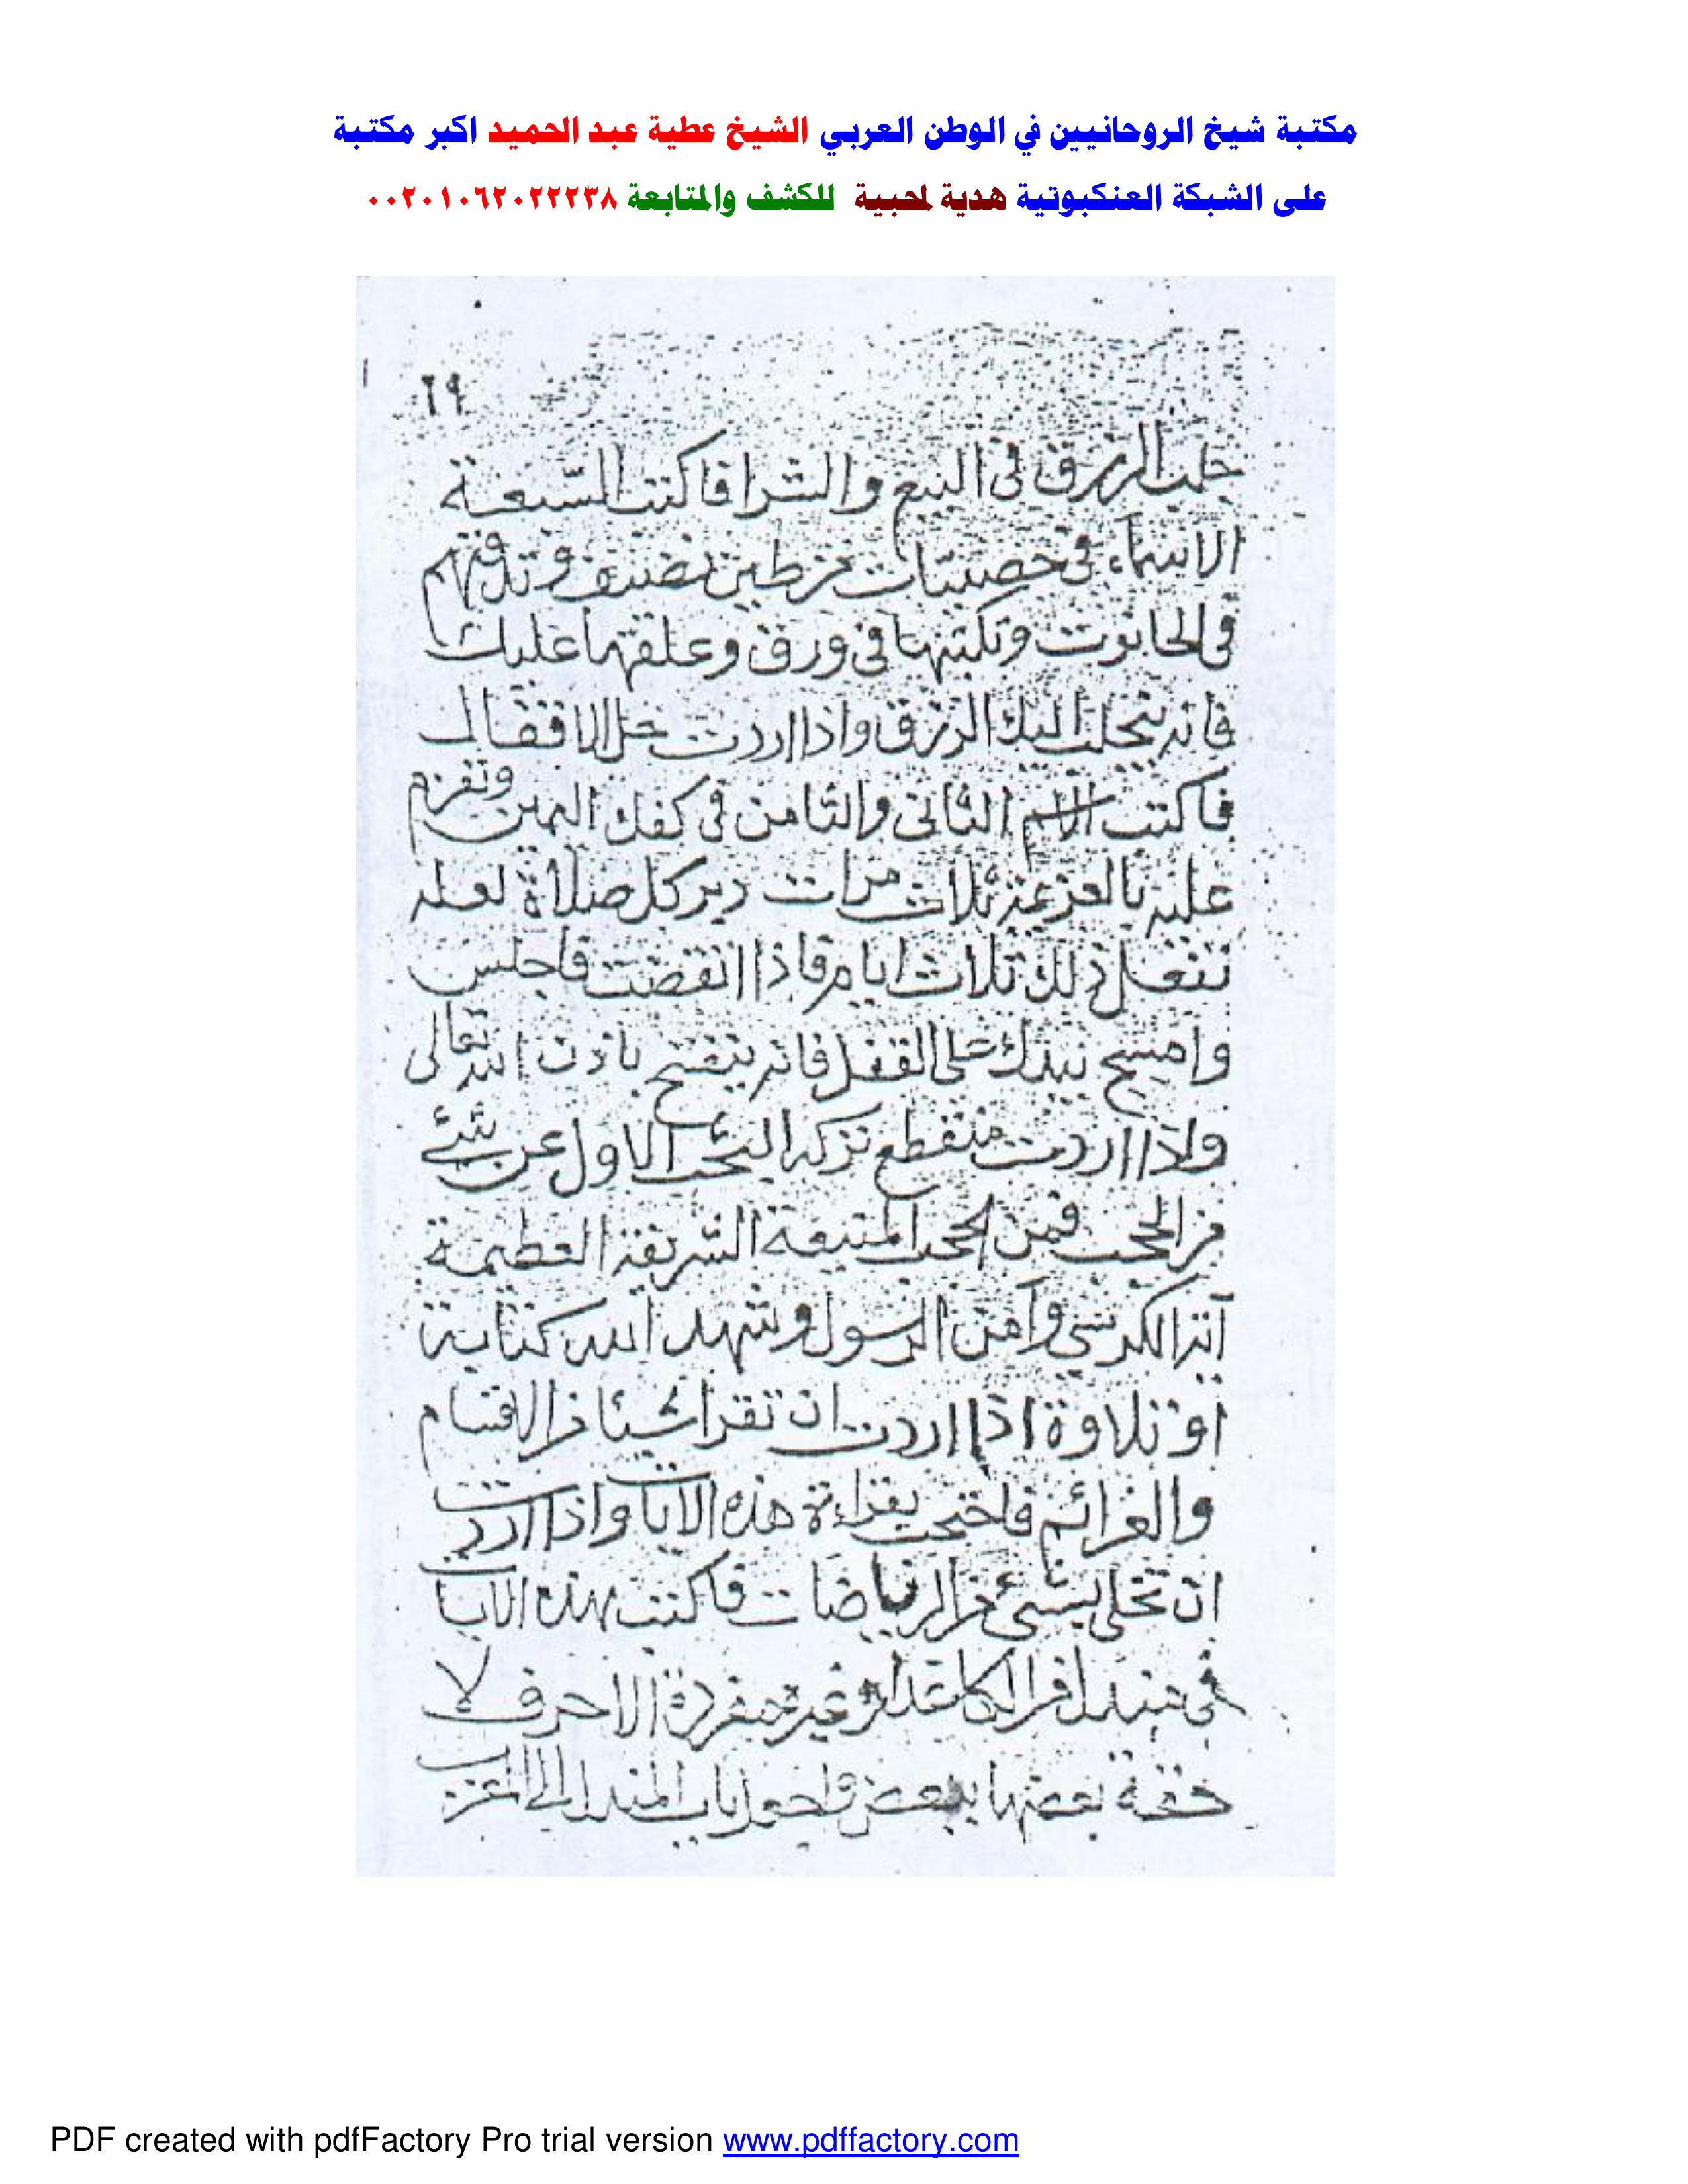 مكتبة شيخ الروحانيين في الوطن العربي الشيخ عطية عبد الحميد اكبر مكتبة
على الشبكة العنكبوتية هدية لمحبية للكشف والمتابعة ٠٠٢٠١٠٦٢٠٢٢٢٣٨
٦٩
جلب الرزق فى البيع والشرا فاكتب السبعة
الاسماء فى من طين نضيف وتدفنهم
فى الحانوت وتكتبها فى ورق وعلقها عليك
فانه ينجلب اليك الرزق واذا اردت حل الاقفال
فاكتب الاسم الثانى والثامن فى كفك اليمين وتعزم
عليه بالعزيمة ثلاث مرات دبر كل صلاة
تفعل ذلك ثلاث ايام فاذا انقضت فاجلس
وامسح بيدك على القفل فانه ينفتح باذن الله تعالى
واذا اردت الاول عن شئ
من الحجب فمن الحجب المنيعة الشريفة العظيمة
آية الكرسى وآمن الرسول وشهد الله كتابة
او تلاوة اذا اردت ان تقرا شيئا من الاقسام
والعزائم فاحتجب بقراءة هذه الايات واذا اردت
ان تختلى لشئ من الرياضات فاكتب هذه الايات
فى مندل من الكاغد غير مفردة الاحرف لا
بعضها ببعض واجعل باب المندل الى الغرب
PDF created with pdfFactory Pro trial version www.pdffactory.com